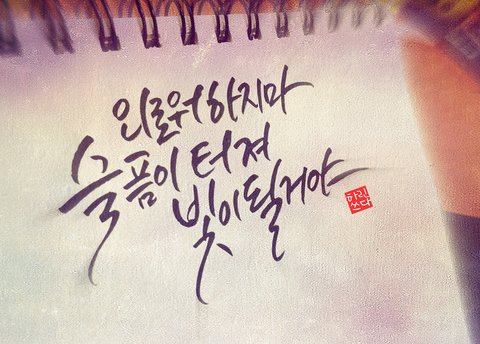 외로워하지마
슬픔이 터져
빛이될거야